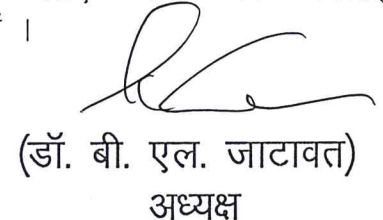 ।
(डॉ. बी. एल. जाटावत)
अध्यक्ष